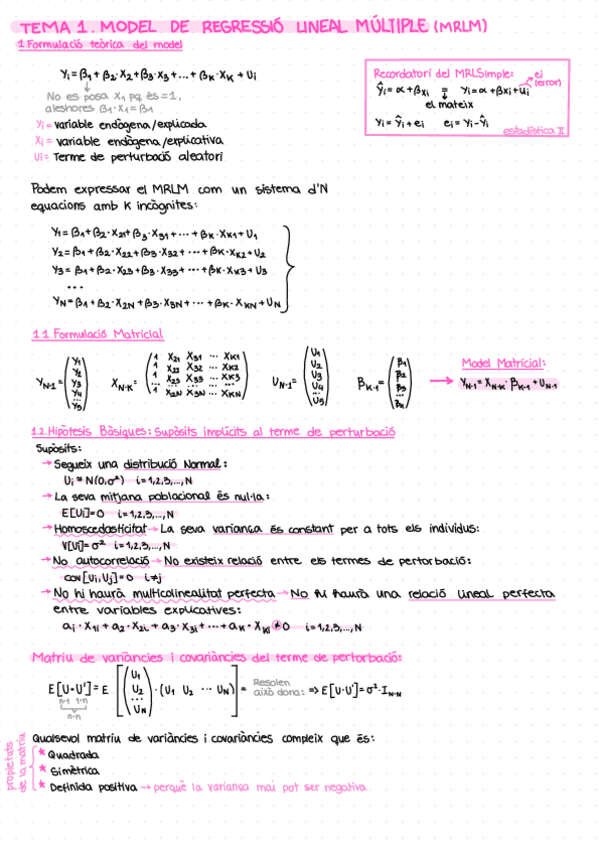 TEMA 1. MODEL DE REGRESSIÓ LINEAL MÚLTIPLE (MRLM)
1. Formulació teòrica del model
Yi = β1 + β2·X2 + β3·X3 + ... + βK·XK + Ui
No es posa X1 pq és = 1,
aleshores β1·X1 = β1
Yi = variable endògena/explicada
Xi = variable endògena/explicativa
Ui = Terme de pertorbació aleatori
Recordatori del MRLSimple:
ei
(error)
Ŷi = α + βxi = Yi = α + βxi + ui
el mateix
Yi = Ŷi + ei ei = Yi - Ŷi
estadística II
Podem expressar el MRLM com un sistema d'N
equacions amb K incògnites:
Y1 = β1 + β2·X21 + β3·X31 + ... + βK·XK1 + U1
Y2 = β1 + β2·X22 + β3·X32 + ... + βK·XK2 + U2
Y3 = β1 + β2·X23 + β3·X33 + ... + βK·XK3 + U3
...
YN = β1 + β2·X2N + β3·X3N + ... + βK·XKN + UN
1.1. Formulació Matricial
YN·1 = (Y1 Y2 Y3 Y4 ... Y5) XN·K = (1 X21 X31 ... XK1 1 X22 X32 ... XK2 1 X23 X33 ... XK3 ... 1 X2N X3N ... XKN) UN·1 = (U1 U2 U3 U4 ... U5) βK·1 = (β1 β2 β3 ... βK)
Model Matricial:
YN·1 = XN·K · βK·1 + UN·1
1.2. Hipòtesis Bàsiques: Supòsits implícits al terme de pertorbació
Supòsits:
→ Segueix una distribució Normal:
Ui ≈ N(0,σ²) i=1,2,3,...,N
→ La seva mitjana poblacional és nul·la:
E[Ui]=0 i=1,2,3,...,N
→ Homoscedasticitat → La seva variança és constant per a tots els individus:
V[Ui] = σ² i=1,2,3,...,N
→ No autocorrelació → No existeix relació entre els termes de pertorbació:
cov[Ui,Uj]=0 i≠j
→ No hi haurà multicolinealitat perfecta → No hi haurà una relació lineal perfecta
entre variables explicatives:
a1·X1i + a2·X2i + a3·X3i + ... + aK·XKi ≠ 0 i=1,2,3,...,N
Matriu de variàncies i covariàncies del terme de pertorbació:
E[U·U'] = E [(U1 U2 ... UN)·(U1 U2 ... UN)] = Resolen això dona: => E[U·U'] = σ²·IN·N
n·1 1·n
n·n
Qualsevol matriu de variàncies i covariàncies compleix que és:
propietats de la matriu
* Quadrada
* Simètrica
* Definida positiva → perquè la variança mai pot ser negativa